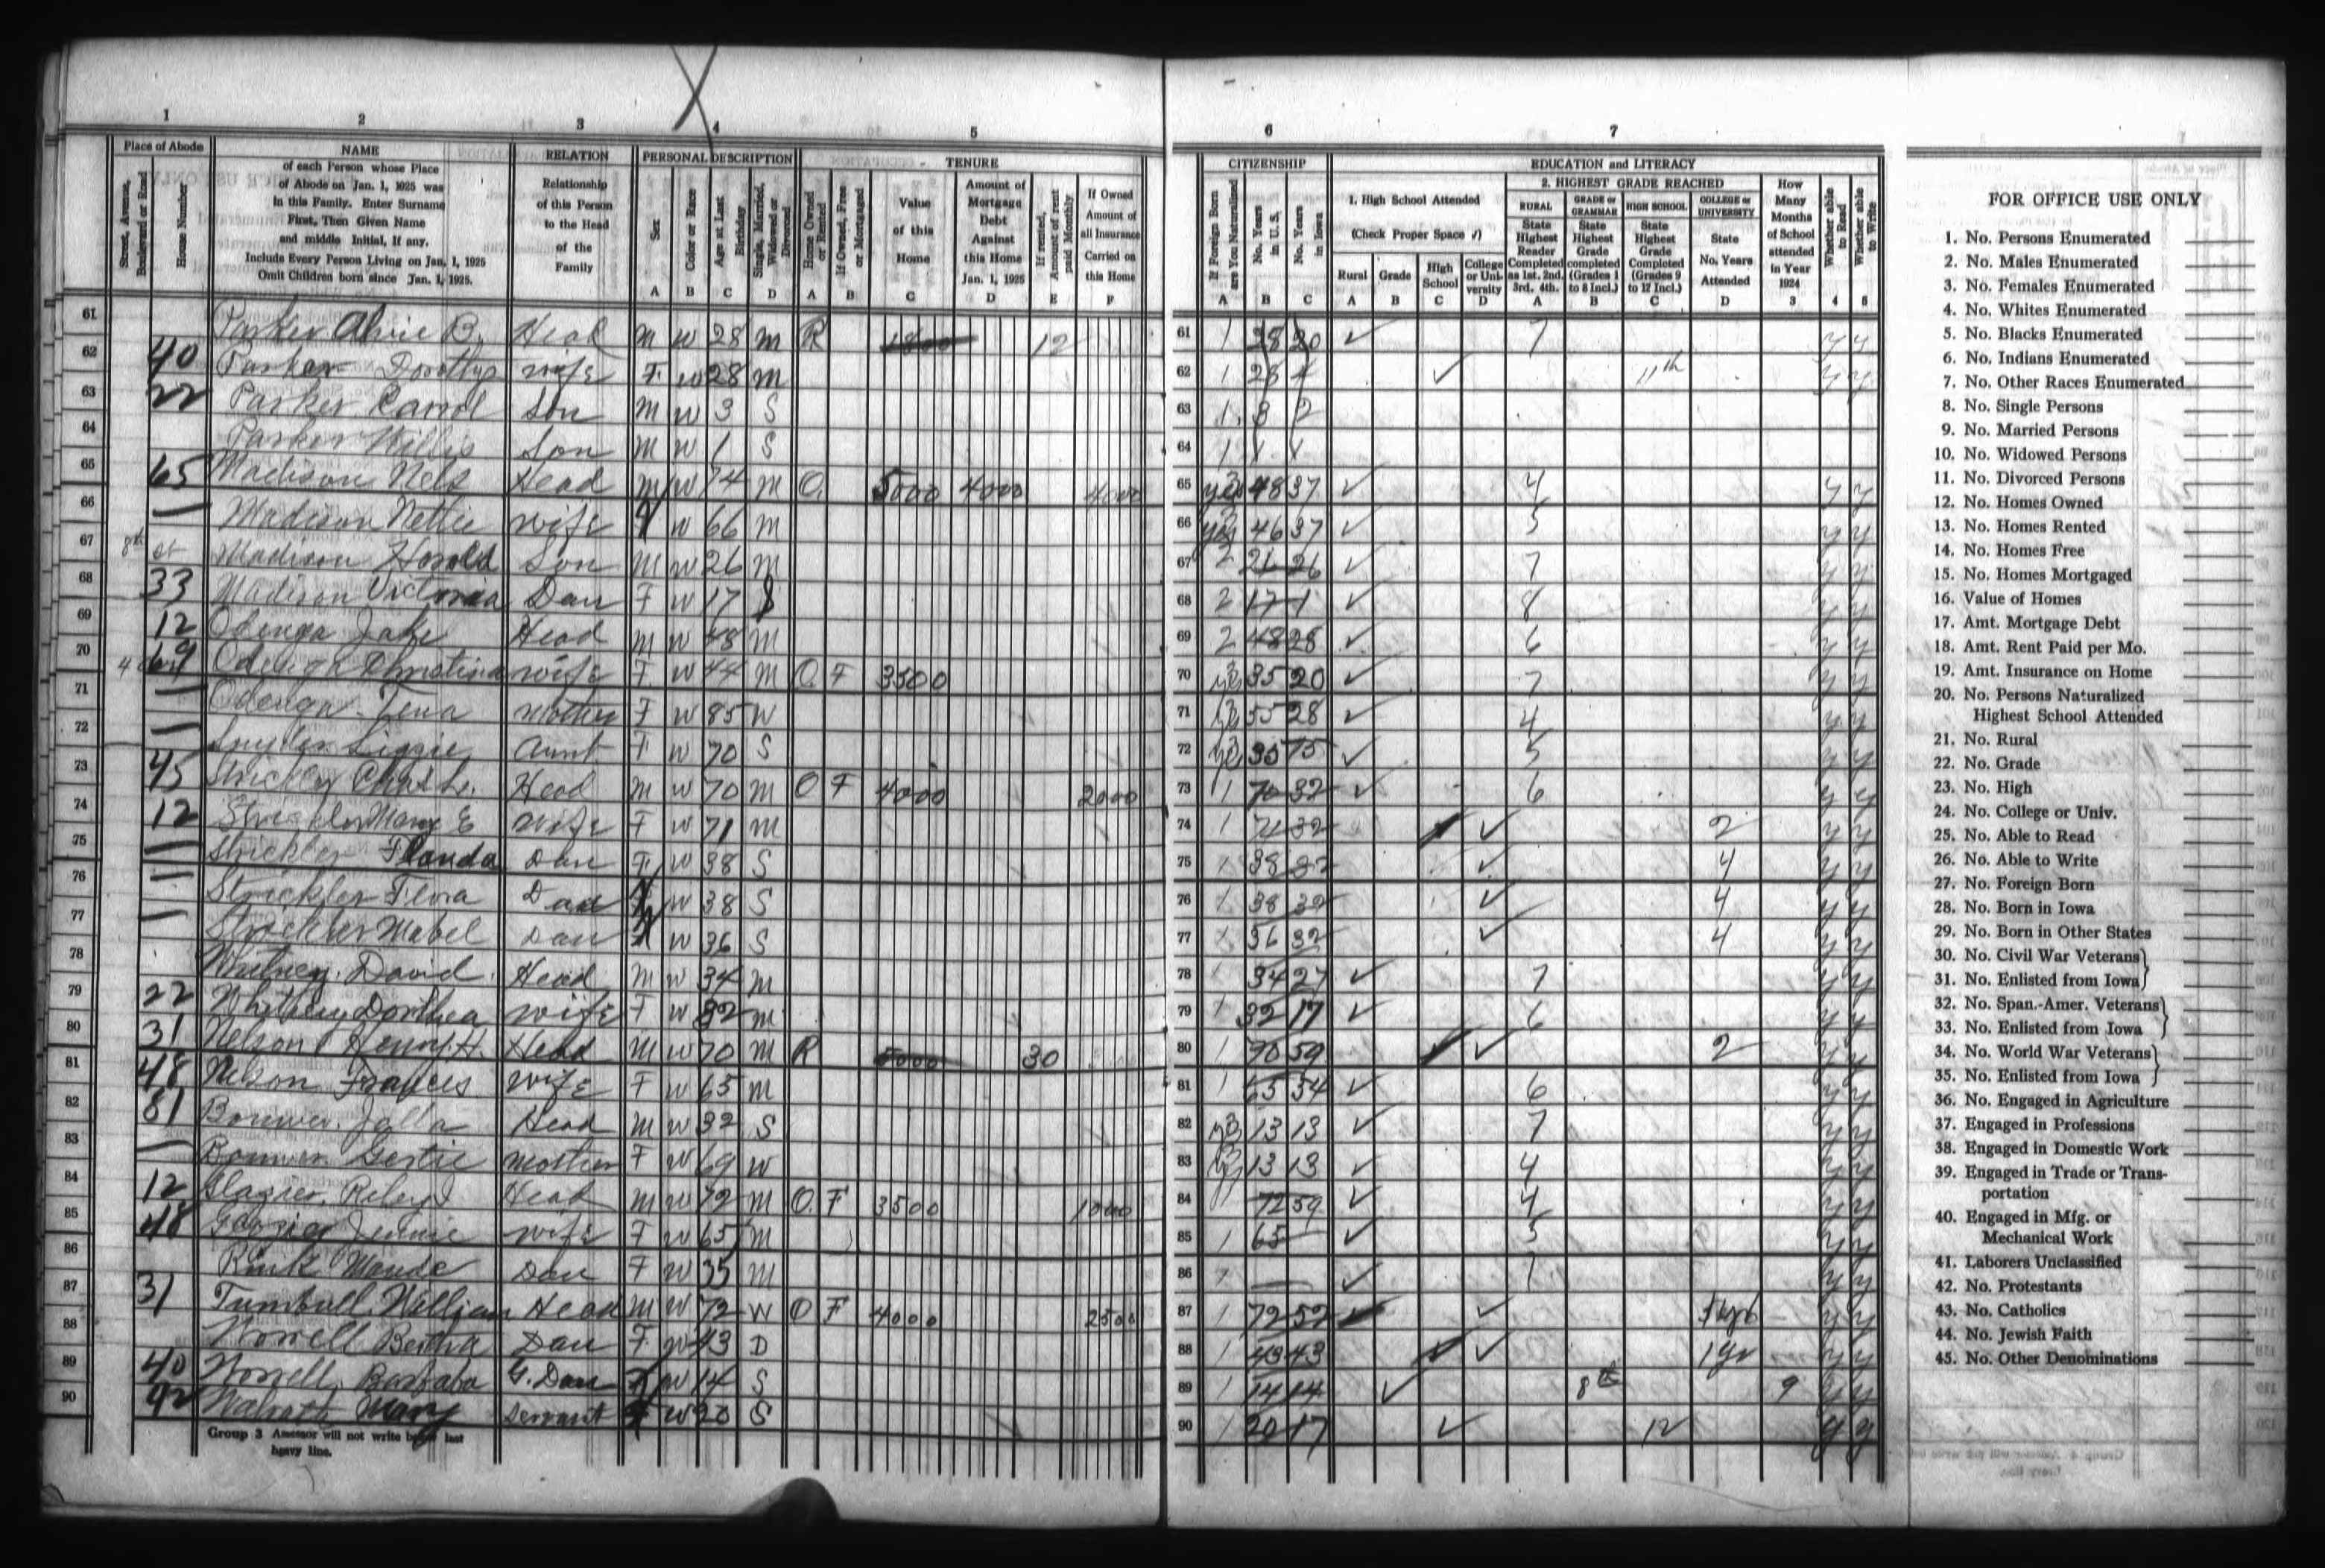 1 2 3 4 5
Place of Abode
Street, Avenue, Boulevard or Road
House Number
NAME
of each Person whose Place
of Abode on Jan. 1, 1925 was
in this Family. Enter Surname
First, Then Given Name
and middle Initial, if any.
Include Every Person Living on Jan. 1, 1925
Omit Children born since Jan. 1, 1925.
RELATION
Relationship
of this Person
to the Head
of the
Family
PERSONAL DESCRIPTION
Sex
Color or Race
Age at Last Birthday
Single, Married, Widowed or Divorced
A B C D
TENURE
Home Owned or Rented
If Owned, Free or Mortgaged
Value of this Home
Amount of Mortgage Debt Against this Home Jan. 1, 1925
If rented, Amount of rent paid Monthly
If Owned Amount of all Insurance Carried on this Home
A B C D E F
61 Parker B. Head M W 28 M R 12
62 40 Parker Dorothy wife F W 28 M
63 22 Parker Son M W 3 S
64 Parker Willis Son M W 1 S
65 65 Madison Nels Head M W 74 M O. 5000 4000 4000
66 — Madison Nettie wife F W 66 M
67 8th st Madison Harold Son M W 26 M
68 33 Madison Victoria Dau F W 17 S
69 12 Odenga Jake Head M W 48 M
70 69 Odenga Christina wife F W 44 M O. F 3500
71 — Odenga Tena Mother F W 85 W
72 — Snyder Lizzie Aunt F W 70 S
73 45 Strickler Chas L. Head M W 70 M O F 4000 2000
74 12 Strickler Mary E wife F W 71 M
75 — Strickler Dau F W 38 S
76 — Strickler Flora Dau F W 38 S
77 — Strickler Mabel Dau F W 36 S
78 Whitney David Head M W 34 M
79 22 Whitney Dorthea wife F W 32 M
80 31 Nelson Henry H. Head M W 70 M R 5000 30
81 48 Nelson Frances wife F W 65 M
82 81 Head M W 32 S
83 — Gertie Mother F W 69 W
84 12 Glazier, Riley Head M W 72 M O. F 3500 1000
85 48 Glazier Jennie wife F W 65 M
86 Rink Maude Dau F W 35 M
87 31 Turnbull William Head M W 72 W O F 4000 2500
88 Norrell Bertha Dau F W 43 D
89 40 Norrell Barbara G. Dau F W 14 S
90 42 Walrath Mary Servant F W 20 S
Group 3 Assessor will not write below last
heavy line.
6 7
CITIZENSHIP
If Foreign Born are You Naturalized
No. Years in U.S.
No. Years in Iowa
A B C
EDUCATION and LITERACY
1. High School Attended
(Check Proper Space ✓)
Rural Grade High School College or University
A B C D
2. HIGHEST GRADE REACHED
RURAL
State Highest Reader Completed as 1st. 2nd. 3rd. 4th.
GRADE or GRAMMAR
State Highest Grade completed (Grades 1 to 8 Incl.)
HIGH SCHOOL
State Highest Grade Completed (Grades 9 to 12 Incl.)
COLLEGE or UNIVERSITY
State No. Years Attended
A B C D
How Many Months of School attended in Year 1924
Whether able to Read
Whether able to Write
3 4 5
61 1 28 20 ✓ 7 y y
62 1 28 ✓ 11th y y
63 1 3 2
64 1
65 yes 48 37 ✓ 4 y y
66 yes 46 37 ✓ 5 y y
67 2 26 26 ✓ 7 y y
68 2 17 1 ✓ 8 y y
69 2 48 28 ✓ 6 y y
70 35 20 ✓ 7 y y
71 55 28 ✓ 4 y y
72 ✓ 5 y y
73 1 70 32 ✓ 6 y y
74 1 71 32 ✓ 2 y y
75 1 38 32 ✓ 4 y y
76 1 38 32 ✓ 4 y y
77 1 36 32 ✓ 4 y y
78 1 34 27 ✓ 7 y y
79 1 32 17 ✓ 6 y y
80 1 70 59 ✓ 2 y y
81 1 65 54 ✓ 6 y y
82 13 13 ✓ 7 y y
83 13 13 ✓ 4 y y
84 1 72 59 ✓ 4 y y
85 1 65 ✓ 5 y y
86 1 — ✓ 7 y y
87 1 72 52 ✓ y y
88 1 43 43 ✓ 1 yr y y
89 1 14 14 ✓ 8th 9 y y
90 1 20 17 ✓ 12 y y
FOR OFFICE USE ONLY
1. No. Persons Enumerated
2. No. Males Enumerated
3. No. Females Enumerated
4. No. Whites Enumerated
5. No. Blacks Enumerated
6. No. Indians Enumerated
7. No. Other Races Enumerated
8. No. Single Persons
9. No. Married Persons
10. No. Widowed Persons
11. No. Divorced Persons
12. No. Homes Owned
13. No. Homes Rented
14. No. Homes Free
15. No. Homes Mortgaged
16. Value of Homes
17. Amt. Mortgage Debt
18. Amt. Rent Paid per Mo.
19. Amt. Insurance on Home
20. No. Persons Naturalized
Highest School Attended
21. No. Rural
22. No. Grade
23. No. High
24. No. College or Univ.
25. No. Able to Read
26. No. Able to Write
27. No. Foreign Born
28. No. Born in Iowa
29. No. Born in Other States
30. No. Civil War Veterans
31. No. Enlisted from Iowa
32. No. Span.-Amer. Veterans
33. No. Enlisted from Iowa
34. No. World War Veterans
35. No. Enlisted from Iowa
36. No. Engaged in Agriculture
37. Engaged in Professions
38. Engaged in Domestic Work
39. Engaged in Trade or Trans-
portation
40. Engaged in Mfg. or
Mechanical Work
41. Laborers Unclassified
42. No. Protestants
43. No. Catholics
44. No. Jewish Faith
45. No. Other Denominations